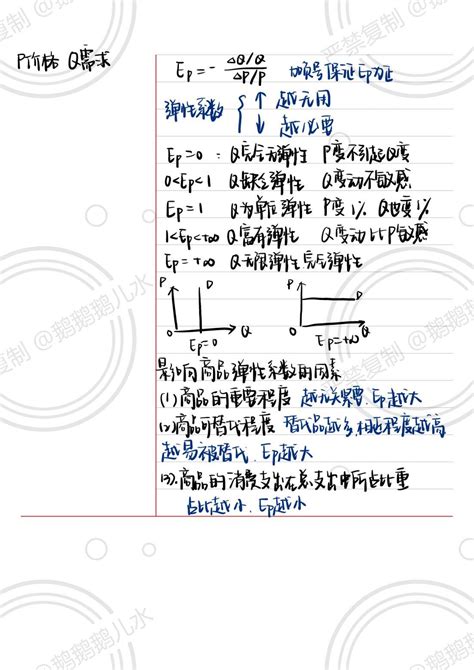 P价格 Q需求
Ep = - ΔQ/Q / ΔP/P 加负号保证Ep为正
弹性系数 { ↑ 越无用
↓ 越必要
Ep=0 : Q完全无弹性 P变不引起Q变
0<Ep<1 Q缺乏弹性 Q变动不敏感
Ep=1 Q为单位弹性 P变1% Q也变1%
1<Ep<+∞ Q富有弹性 Q变动比P敏感
Ep=+∞ Q无限弹性/完全弹性
P D P D
O Q O Q
Ep=0 Ep=+∞
影响商品弹性系数的因素
(1)商品的重要程度 越无关紧要,Ep越大
(2)商品可替代程度 替代品越多,相近程度越高
越易被替代,Ep越大
(3).商品的消费支出在总支出中所占比重
占比越小,Ep越小
严禁复制 @鹅鹅鹅儿水